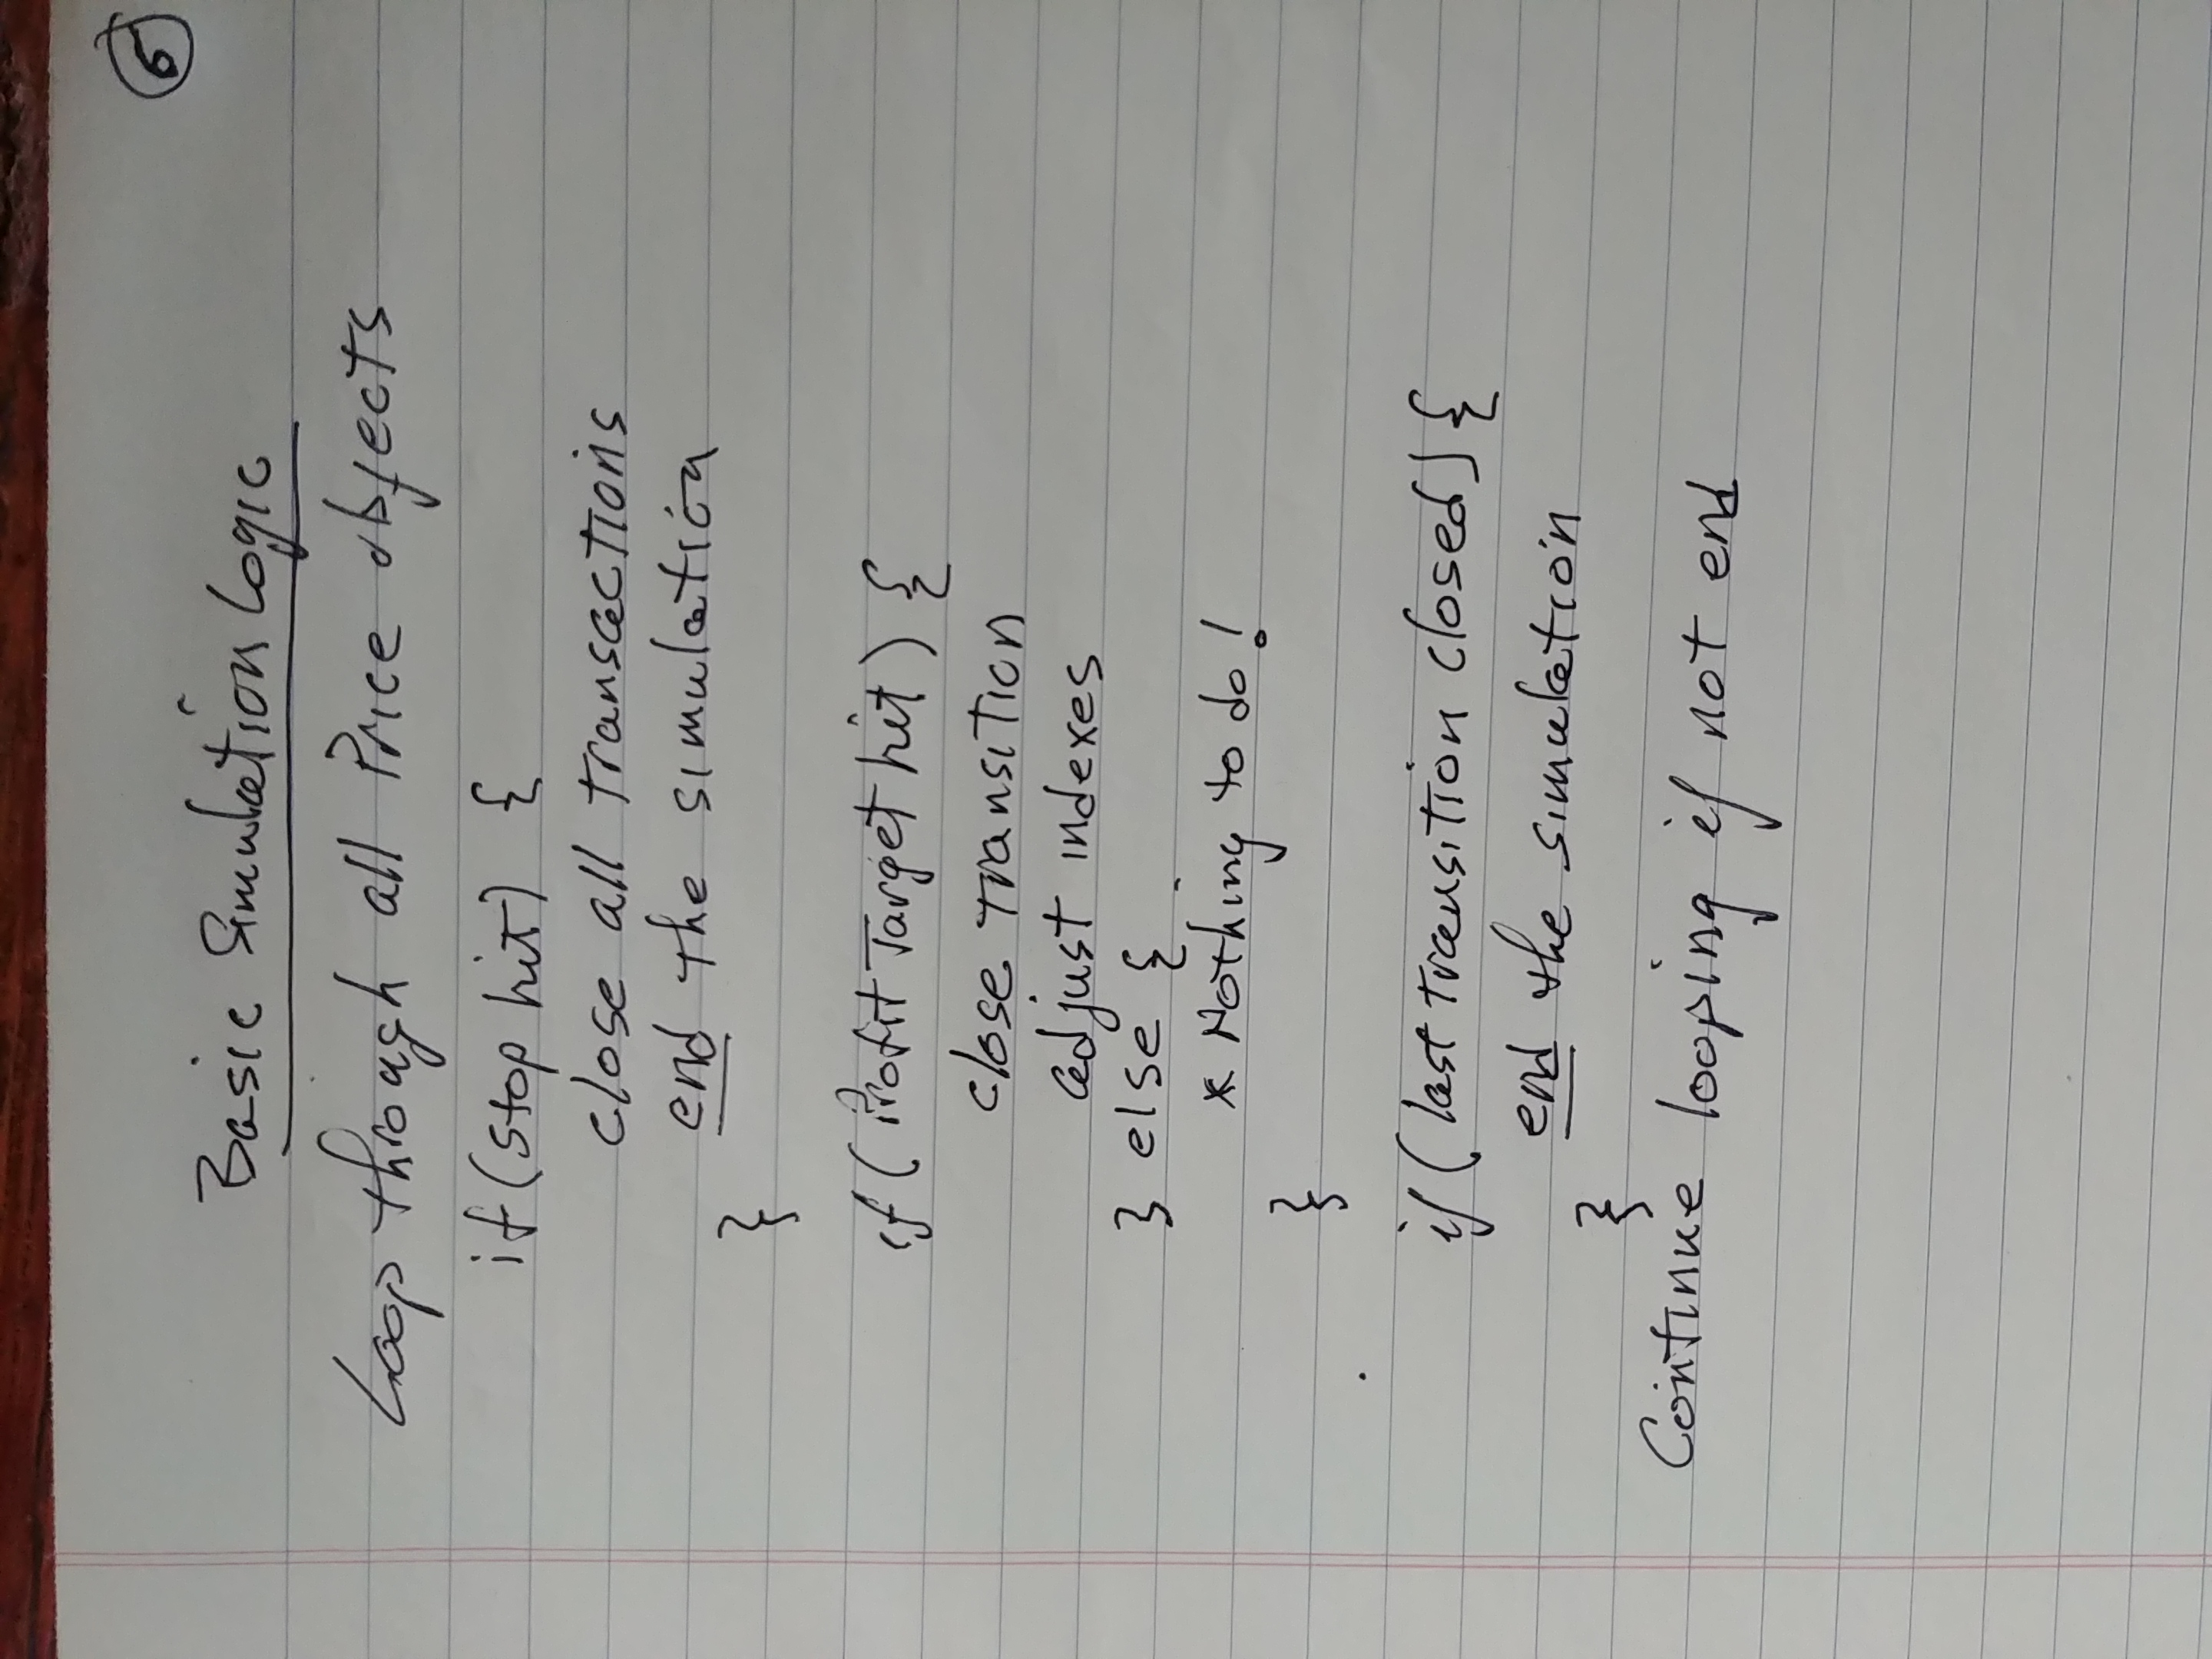 6
Basic Simulation Logic
Loop through all Price objects
if (stop hit) {
close all transactions
end the simulation
}
if (Profit Target hit) {
close transition
adjust indexes
} else {
* Nothing to do!
}
if (last transition closed) {
end the simulation
}
Continue looping if not end